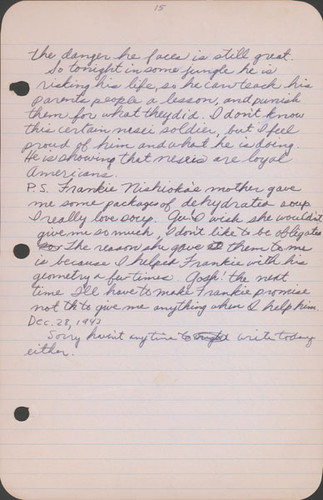 15
the danger he faces is still great.
So tonight in some jungle he is
risking his life, so he can teach his
parents people a lesson, and punish
them for what they did. I don't know
this certain nisei soldier, but I feel
proud of him and what he is doing.
He is showing that niseis are loyal
Americans.
P.S. Frankie Nishioka's mother gave
me some packages of dehydrated soup
I really love soup. Gee I wish she wouldn't
give me so much, I don't like to be obligated
The reason she gave them to me
is because I helped Frankie with his
geometry a few times. Gosh! the next
time I'll have to make Frankie promise
not to give me anything when I help him.
Dec. 28, 1942
Sorry haven't any time to write today
either.